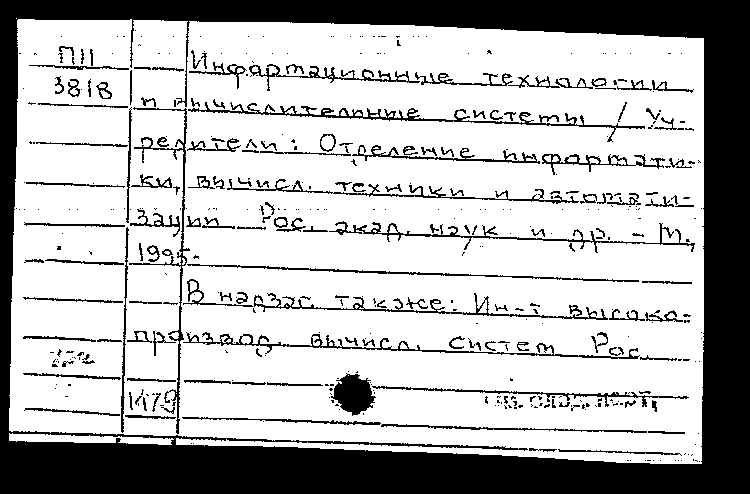 П11
3818
Информационные технологии
и вычислительные системы / Уч-
редители: Отделение информати-
ки, вычисл. техники и автомати-
зации Рос. акад. наук и др. – М.,
1995-
В надзаг. также: Ин-т высоко-
производ. вычисл. систем Рос.
1479